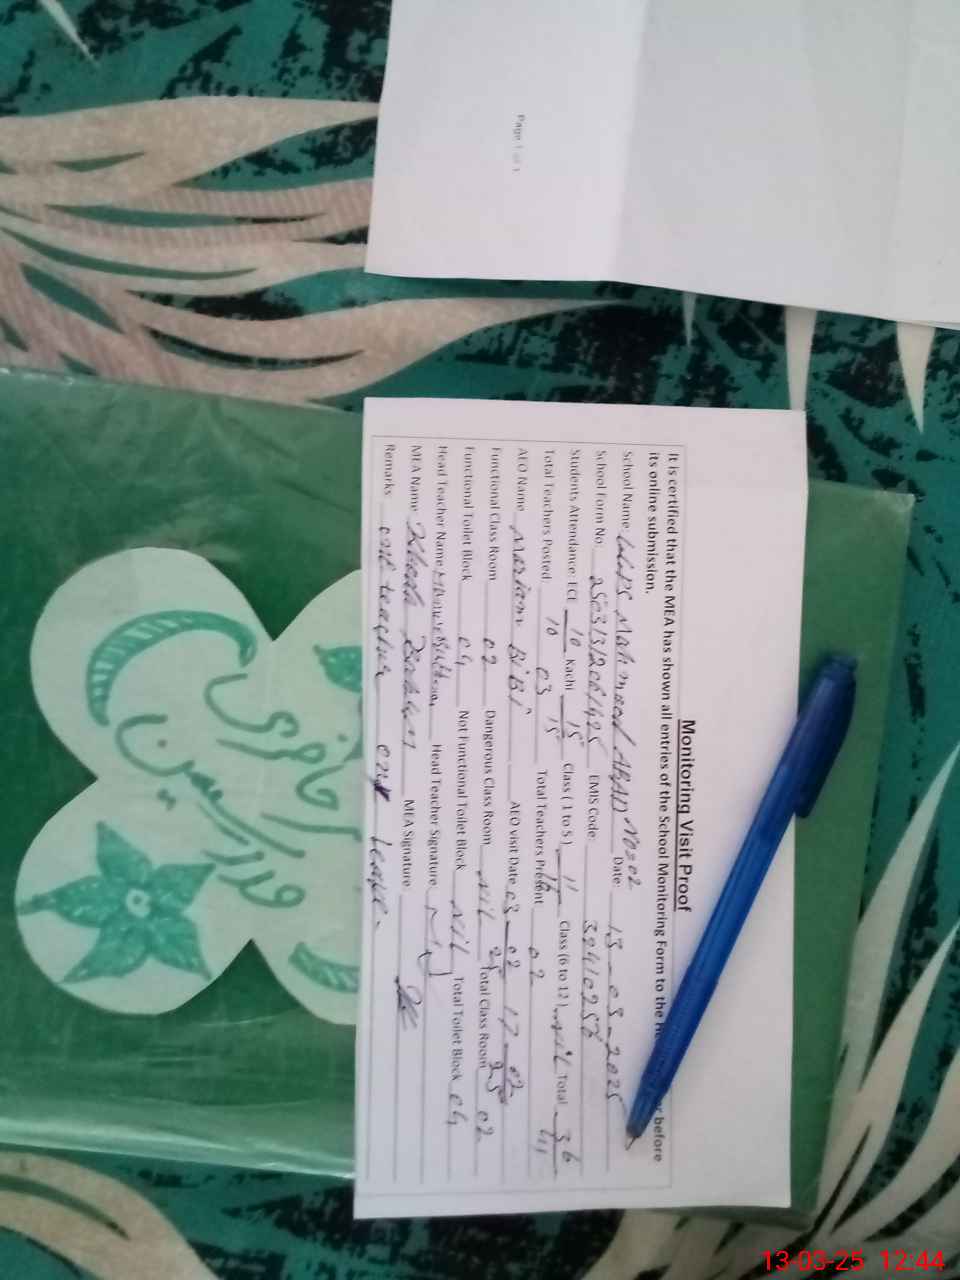 Page 1 of 1
Monitoring Visit Proof
It is certified that the MEA has shown all entries of the School Monitoring Form to the before
its online submission.
School Name Mahmood ABAD No 02 Date: 13-03-2025
School Form No: EMIS Code:
Students Attendance: ECE 10 Kachi 15 Class ( 1 to 5 ) 11 Class (6 to 12) nil Total 36
10 15 16 41
Total Teachers Posted: 03 Total Teachers Present 02
AEO Name Mariam BiBi AEO visit Date 03-02-25 17-02-25
Functional Class Room 02 Dangerous Class Room nil Total Class Room 02
Functional Toilet Block 04 Not Functional Toilet Block nil Total Toilet Block 04
Head Teacher Name Head Teacher Signature
MEA Name MEA Signature
Remarks: one teacher on leave.
حاضری
مدرسین
13-03-25 12:44